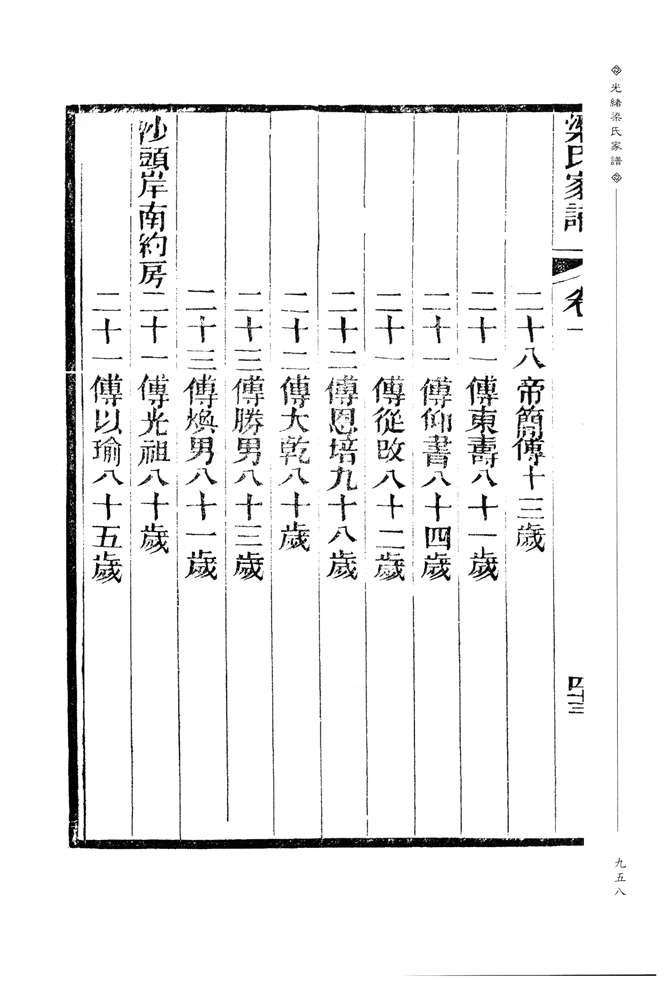 光緒梁氏家譜
梁氏家譜 卷一 四十三
二十八帝簡傳十三歲
二十一傳東壽八十一歲
二十一傳仰書八十四歲
二十一傳從改八十二歲
二十二傳恩培九十八歲
二十二傳大乾八十歲
二十三傳勝男八十三歲
二十三傳煥男八十一歲
沙頭岸南約房 二十一傳光祖八十歲
二十一傳以瑜八十五歲
九五八